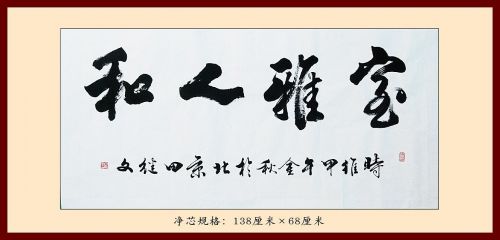 室雅人和
時維甲午金秋於北京田從文
净芯规格：138厘米×68厘米